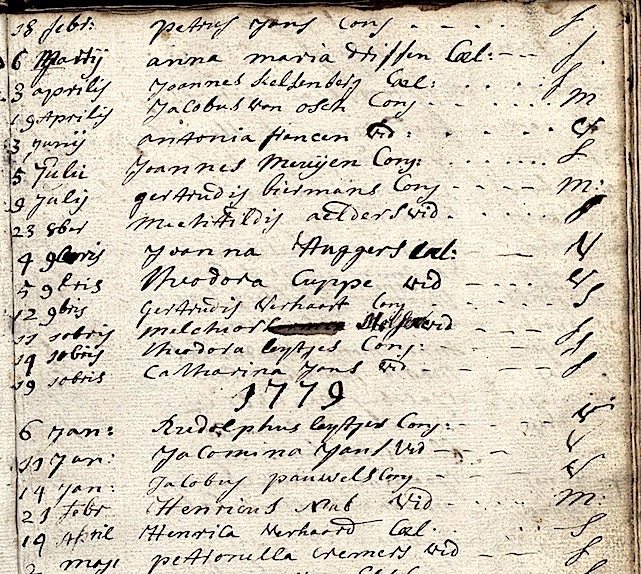 18 febr: petrus Jans Conj - - - - - - f.
6 Martij anna maria driſsen Cæl: - - - f
3 aprilis Joannes Keldenberg Cæl: - - - - f
19 Aprilis Jacobus van osch Conj - - - - m
3 Junij antonia francen vid: - - - - -
5 Julii Joannes Meuÿen Conj: - - - - - f
9 July gertrudis biermans Conj - - - - m:
23 8ber Mechtildis aelders vid - - - - f
4 9bris Joanna Huggers Cæl: - - - V
5 9bris Theodora Cuppe vid - - - - V
12 9bris Gertrudis Verhaart Conj - - - - S
11 10bris melchior vid - - - - f
14 10bris Theodora leÿtjes Conj: - - - - f
19 10bris Catharina Jans vid - - - - f
1779
6 Jan: Rudolphus leÿtjes Conj: - - - - V
11 Jan: Jacomina Jans vid - - - V
14 Jan: Jacobus pauwels Conj - - - - V
21 febr Henricus Nab vid - - - m:
19 April Henrica Verhaard Cæl: - - - S
maji petronella Cremers vid - - - f